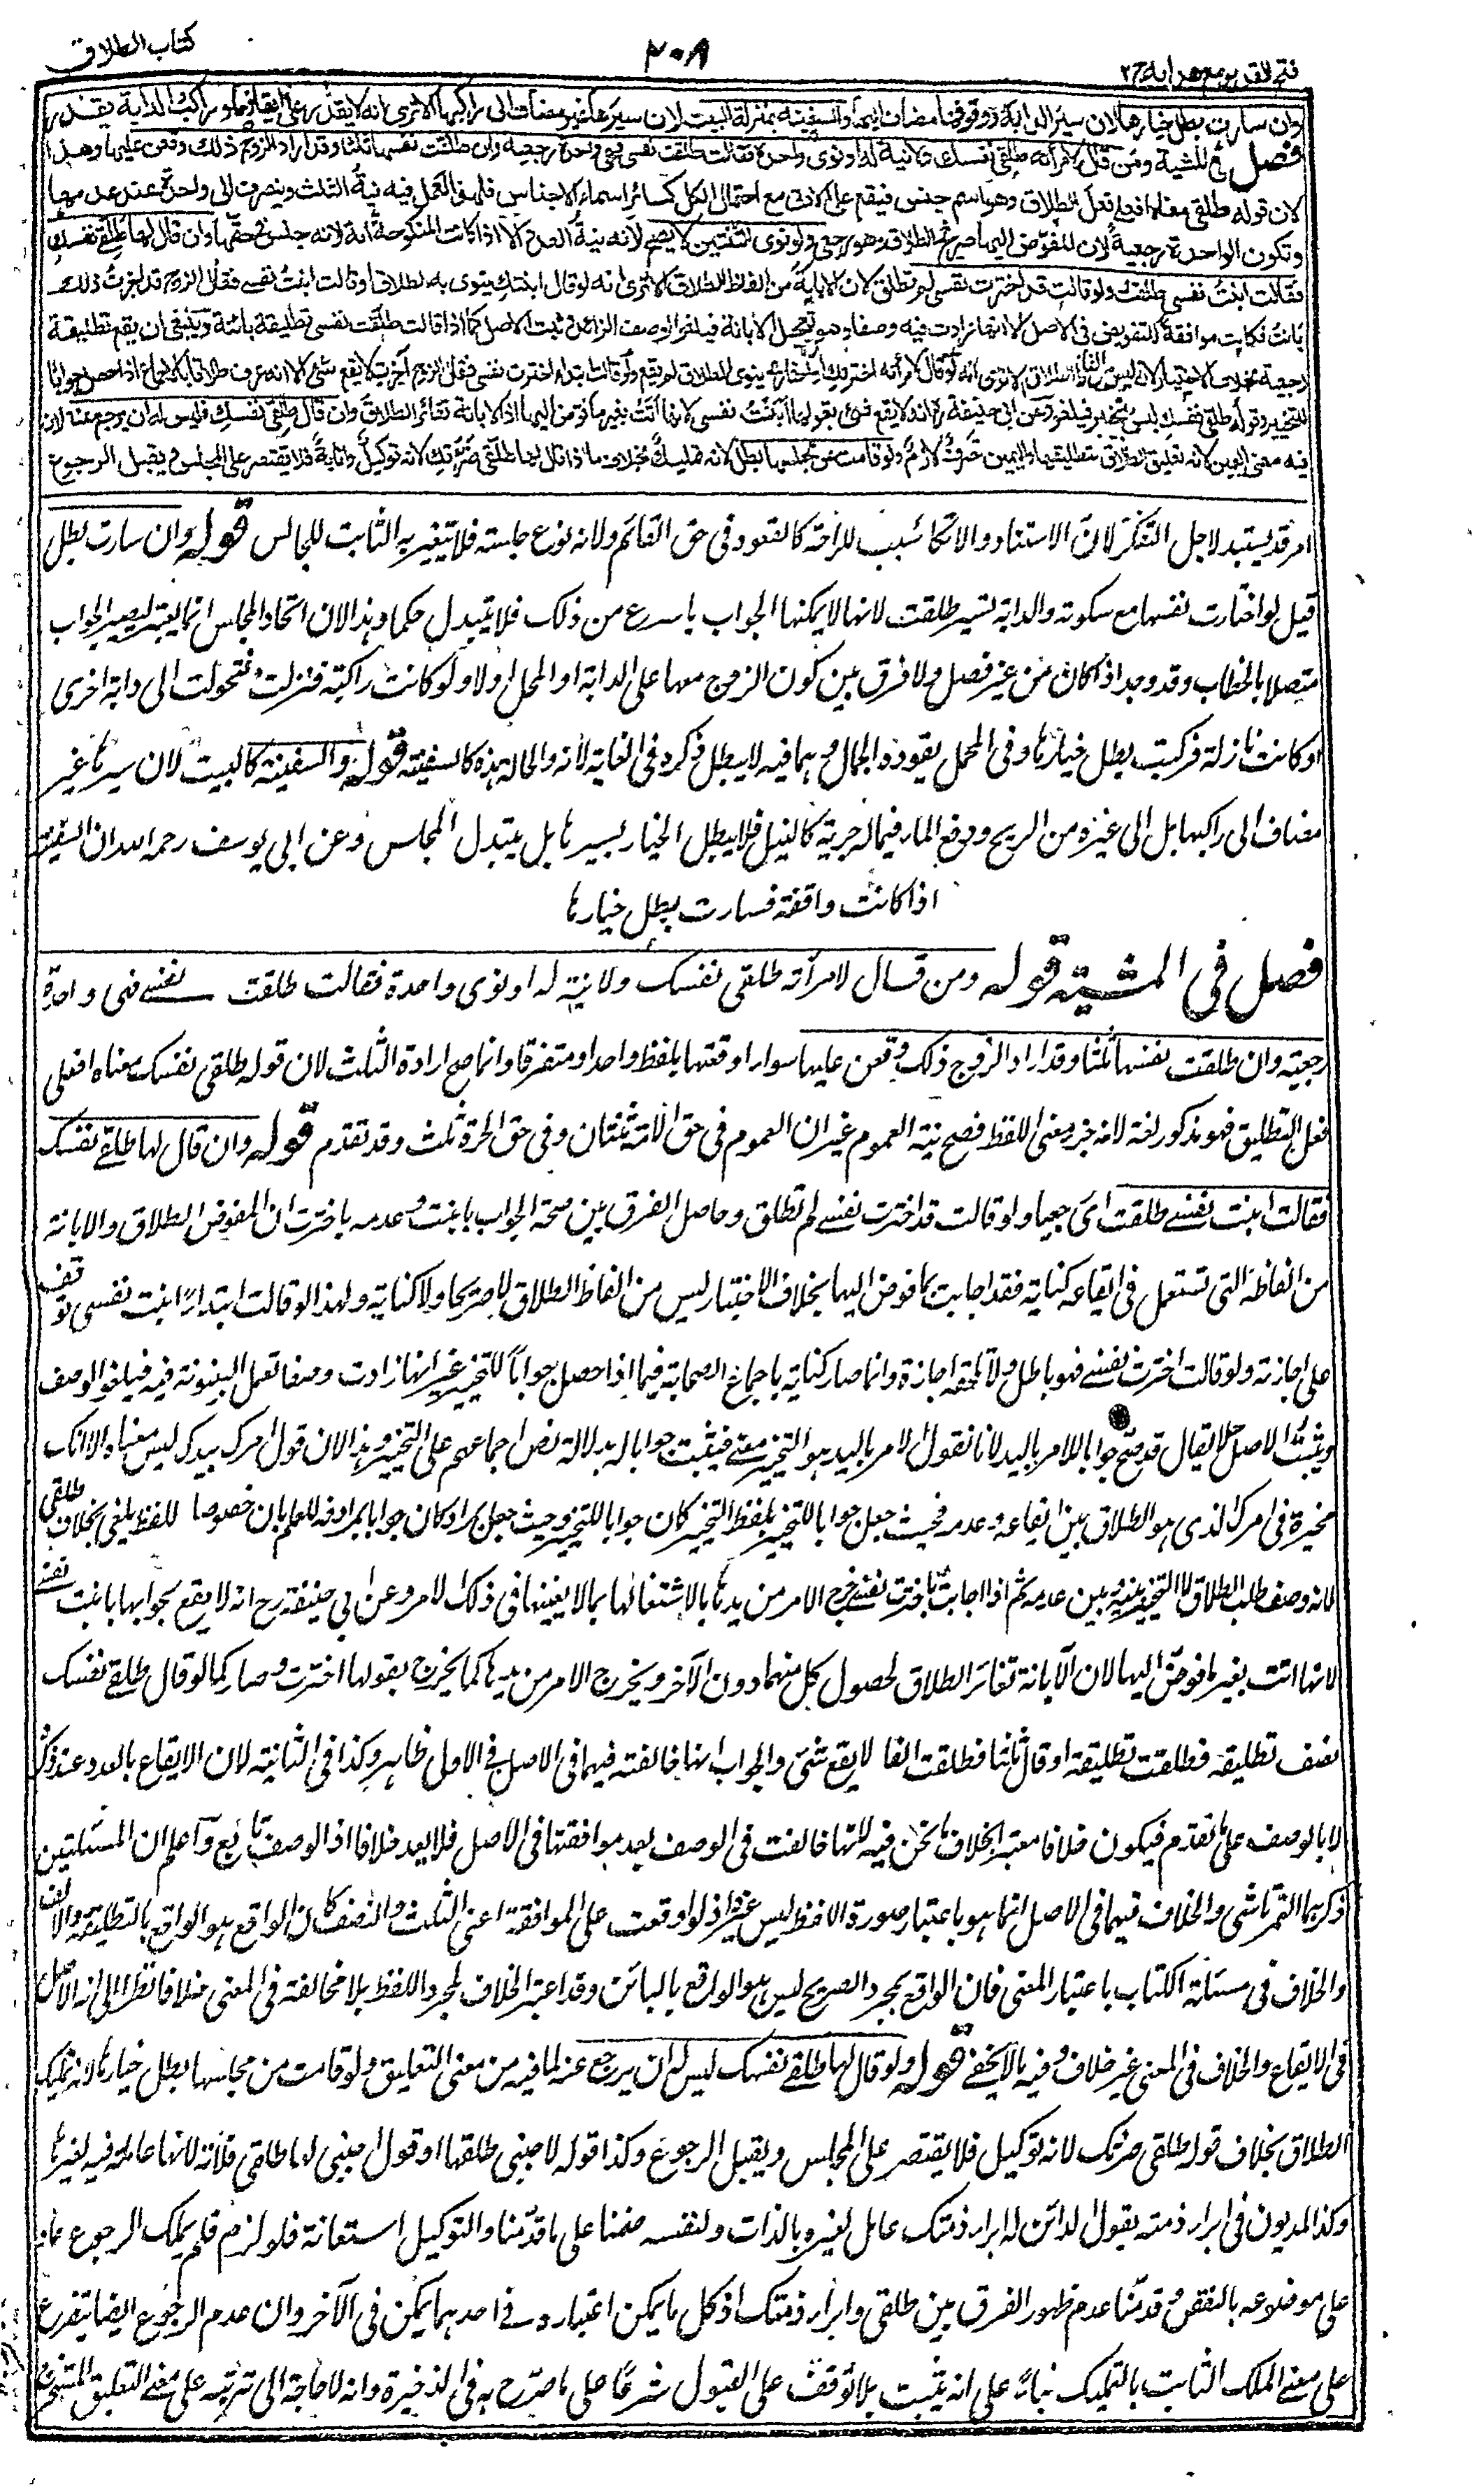 كتاب الطلاق
٢٠٨
فتح القدير مع هداية ج٢
وان سارت بطل خيارها لان سير الدابة ووقوفها مضاف اليها والسفينة بمنزلة البيت لان سيرها غير مضاف الى راكبها الا ترى انه لا يقدر على ايقافها وراكب الدابة يقدر
فصل في المشية ومن قال لامرأته طلقي نفسك ولا نية له او نوى واحدة فقالت طلقت نفسي فهي واحدة رجعية وان طلقت نفسها ثلثا وقد اراد الزوج ذلك وقعن عليها وهذا
لان قوله طلقي معناه افعلي فعل الطلاق وهو اسم جنس فيقع على الادنى مع احتمال الكل كسائر اسماء الاجناس فلهذا تعمل فيه نية الثلث وينصرف الى واحدة عند عدمها
وتكون الواحدة رجعية لان المفوض اليها صريح الطلاق وهو رجعي ولو نوى الثنتين لا يصح لانه نية العدد الا اذا كانت المنكوحة امة لانه جنس في حقها وان قال لها طلقي نفسك
فقالت ابنت نفسي طلقت ولو قالت قد اخترت نفسي لم تطلق لان الابانة من الفاظ الطلاق الا ترى انه لو قال ابنتك ينوي به الطلاق او قالت ابنت نفسي فقال الزوج قد اجزت ذلك
بانت فكانت موافقة للتفويض في الاصل الا انها زادت فيه وصفا وهو تعجيل الابانة فيلغو الوصف الزائد ويثبت الاصل كما اذا قالت طلقت نفسي تطليقة بائنة وينبغي ان يقع تطليقة
رجعية بخلاف الاختيار لانه ليس من الفاظ الطلاق الا ترى انه لو قال لامرأته اخترتك او اختاري ينوي الطلاق لم يقع ولو قالت ابتداء اخترت نفسي فقال الزوج اجزت لا يقع شئ الا انه عرف طلاقا بالاجماع اذا حصل جوابا
للتخيير وقوله طلقي نفسك ليس بتخيير فيلغو وعن ابي حنيفة رح انه لا يقع شئ بقولها ابنت نفسي لانها اتت بغير ما فوض اليها اذ الابانة تغائر الطلاق وان قال طلقي نفسك فليس له ان يرجع عنه لان
فيه معنى اليمين لانه تعليق الطلاق بتطليقها واليمين تصرف لازم ولو قامت عن مجلسها بطل لانه تمليك بخلاف ما اذا قال لها طلقي ضرتك لانه توكيل وانابة فلا يقتصر على المجلس ويقبل الرجوع
امر قد يستبد لاجل التفكر لان الاستناد والاتكاء سبب للراحة كالقعود في حق القائم ولانه نوع جلسته فلا يتغير به الثابت للجالس قوله وان سارت بطل
قيل لو اختارت نفسها مع سكوته والدابة تسير طلقت لانها لا يمكنها الجواب باسرع من ذلك فلا يتبدل حكما وهذا لان اتحاد المجلس انما يعتبر ليصير الجواب
متصلا بالخطاب وقد وجد اذا كان من غير فصل ولا فرق بين كون الزوج معها على الدابة او المحل او لا ولو كانت راكبة فنزلت و تحولت الى دابة اخرى
او كانت نازلة فركبت بطل خيارها وفى المحمل يقوده الجمال وهما فيه لا يبطل ذكره فى الغاية لانه والحالة هذه كالسفينة قوله والسفينة كالبيت لان سيرها غير
مضاف الى راكبها بل الى غيره من الريح ودفع الماء فيما له جرية كالنيل فلا يبطل الخيار بسيرها بل بتبدل المجلس وعن ابي يوسف رحمه الله ان السفينة
اذا كانت واقفة فسارت بطل خيارها
فصل فى المشية قوله ومن قال لامرأته طلقي نفسك ولا نية له او نوى واحدة فقالت طلقت نفسي فهي واحدة
رجعية وان طلقت نفسها ثلثا وقد اراد الزوج ذلك وقعن عليها سواء اوقعتها بلفظ واحد او متفرقا وانما صح ارادة الثلث لان قوله طلقي نفسك معناه افعلي
فعل التطليق فهو مذكور لغة لانه جزء معنى اللفظ فصح نية العموم غير ان العموم فى حق الامة ثنتان وفى حق الحرة ثلث وقد تقدم قوله وان قال لها طلقي نفسك
فقالت ابنت نفسي طلقت اى رجعيا ولو قالت قد اخترت نفسي لم تطلق وحاصل الفرق بين صحة الجواب بابنت وعدمه باخترت ان المفوض الطلاق والابانة
من الفاظه التى تستعمل فى ايقاعه كناية فقد اجابت بما فوض اليها بخلاف الاختيار ليس من الفاظ الطلاق لا صريحا ولا كناية ولهذا لو قالت ابتداء ابنت نفسي توقف
على اجازته ولو قالت اخترت نفسي فهو باطل ولا تلحقه اجازة وانما صار كناية باجماع الصحابة فيما اذا حصل جوابا للتخيير غير انها زادت وصفا تعجل البينونة فيه فيلغو الوصف
ويثبت الاصل لا يقال قد صح جوابا للامر باليد لانا نقول الامر باليد هو التخيير معنى فيثبت جوابا له بدلالة نص اجماعهم على التخيير وهذا لان قوله امرك بيدك ليس معناه الا انك
مخيرة فى امرك الذى هو الطلاق بين ايقاعه وعدمه فحيث جعل جوابا للتخيير بلفظ التخيير كان جوابا للتخيير وحيث جعل كذا كان جوابا بمرادفه للعلم بان خصوص اللفظ يلغى بخلاف طلقي
لانه وصف طلب الطلاق لا التخيير بينه وبين عدمه ثم اذا اجابت باخترت نفسي خرج الامر من يدها بالاشتغالها بما لا يعنيها فى ذلك الامر وعن ابي حنيفة رح انه لا يقع بجوابها بابنت نفسي
لانها اتت بغير ما فوض اليها لان الابانة تغائر الطلاق لحصول كل منهما دون الآخر ويخرج الامر من يدها كما يخرج بقولها اخترت وصار كما لو قال طلقي نفسك
نصف تطليقة فطلقت تطليقة او قال ثلثا فطلقت الفا لا يقع شئ والجواب انها خالفته فيهما فى الاصل فى الاول ظاهر وكذا فى الثانية لان الايقاع بالعدد عند ذكره
لا بالوصف على ما تقدم فيكون خلافا معتبرا بخلاف ما نحن فيه لانها خالفت فى الوصف بعد موافقتها فى الاصل فلا يعد خلافا اذ الوصف تابع واعلم ان المسئلتين
ذكرهما التمرتاشي والخلاف فيهما فى الاصل انما هو باعتبار صورة اللفظ ليس غير اذ لو اوقعت على الموافقة اعنى الثلث والنصف كان الواقع هو الواقع بالتطليقة والالف
والخلاف فى مسئلة الكتاب باعتبار المعنى فان الواقع بمجرد الصريح ليس هو الواقع بالبائن وقد اعتبر الخلاف لمجرد اللفظ بلا مخالفة فى المعنى خلافا نظرا الى انه الاصل
فى الايقاع والخلاف فى المعنى غير خلاف وفيه ما لا يخفى قوله ولو قال لها طلقي نفسك ليس له ان يرجع عنه لما فيه من معنى التعليق ولو قامت من مجلسها بطل خيارها لانه تمليك
الطلاق بخلاف قوله طلقي ضرتك لانه توكيل فلا يقتصر على المجلس ويقبل الرجوع وكذا قوله لاجنبي طلقها او قول اجنبي لها طلقي فلانة لانها عاملة فيه لغيرها
وكذا المديون فى ابراء ذمته بقول الدائن له ابراء ذمتك عامل لغيره بالذات ولنفسه ضمنا على ما قدمنا والتوكيل استعانة فلو لزم فلم يملك الرجوع عاد
على موضوعه بالنقض وقدمنا عدم ظهور الفرق بين طلقي وابراء ذمتك اذ كل ما يمكن اعتباره فى احدهما يمكن فى الآخر وان عدم الرجوع ايضا يتفرع
على معنى الملك الثابت بالتمليك بناء على انه يثبت بلا توقف على القبول شرعا على ما صرح به فى الذخيرة وانه لا حاجة الى ترتبه على معنى التعليق المستخرج